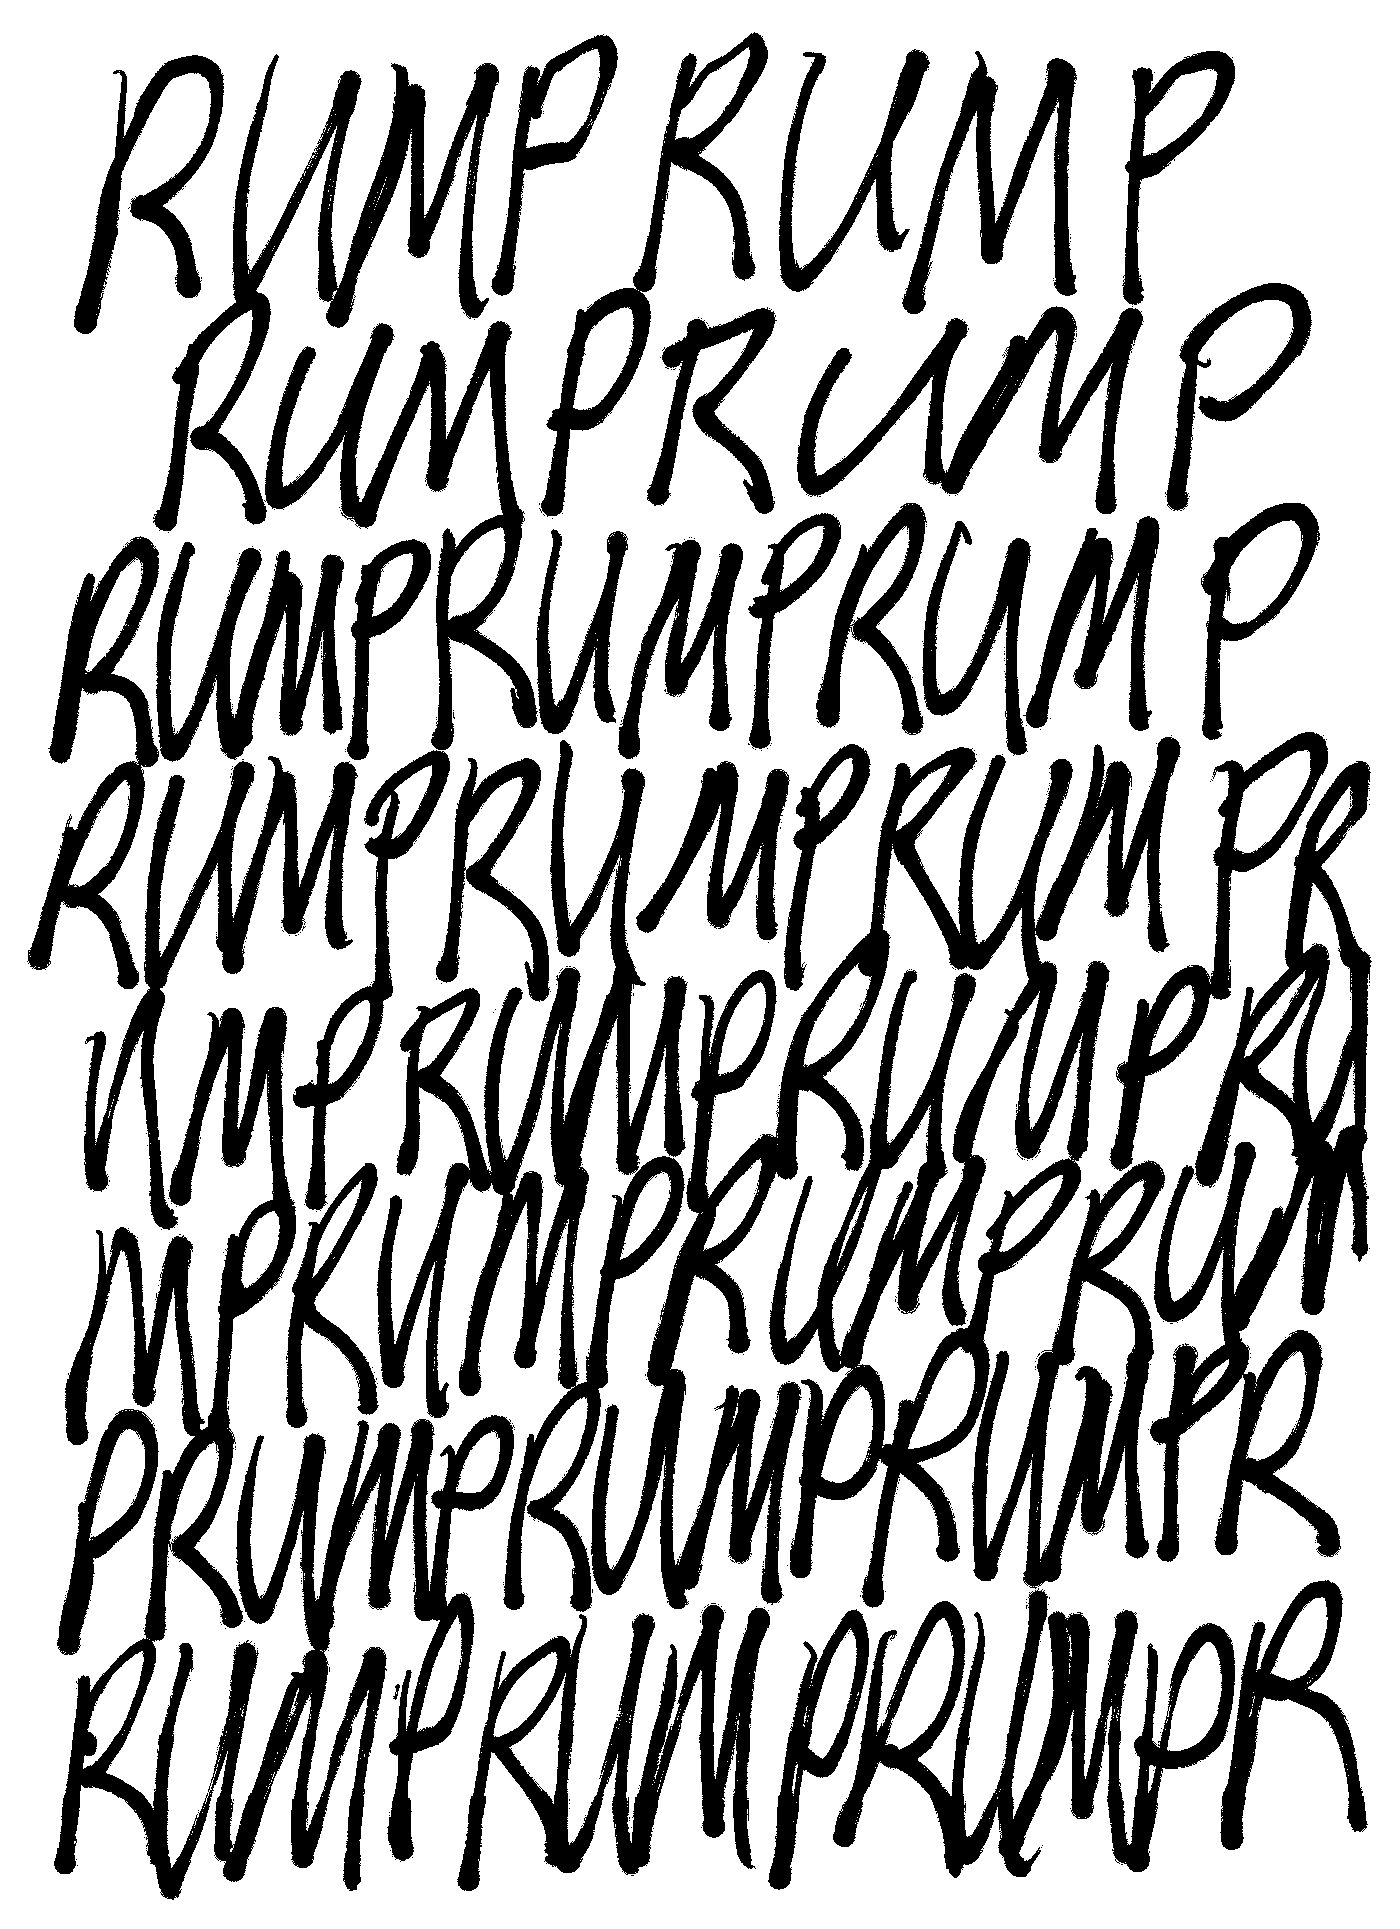 RUMP RUMP
RUMP RUMP
RUMPRUMPRUMP
RUMPRUMPRUMPR
UMPRUMPRUMPRU
MPRUMPRUMPRUM
PRUMPRUMPRUMPR
RUMPRUMPRUMPR